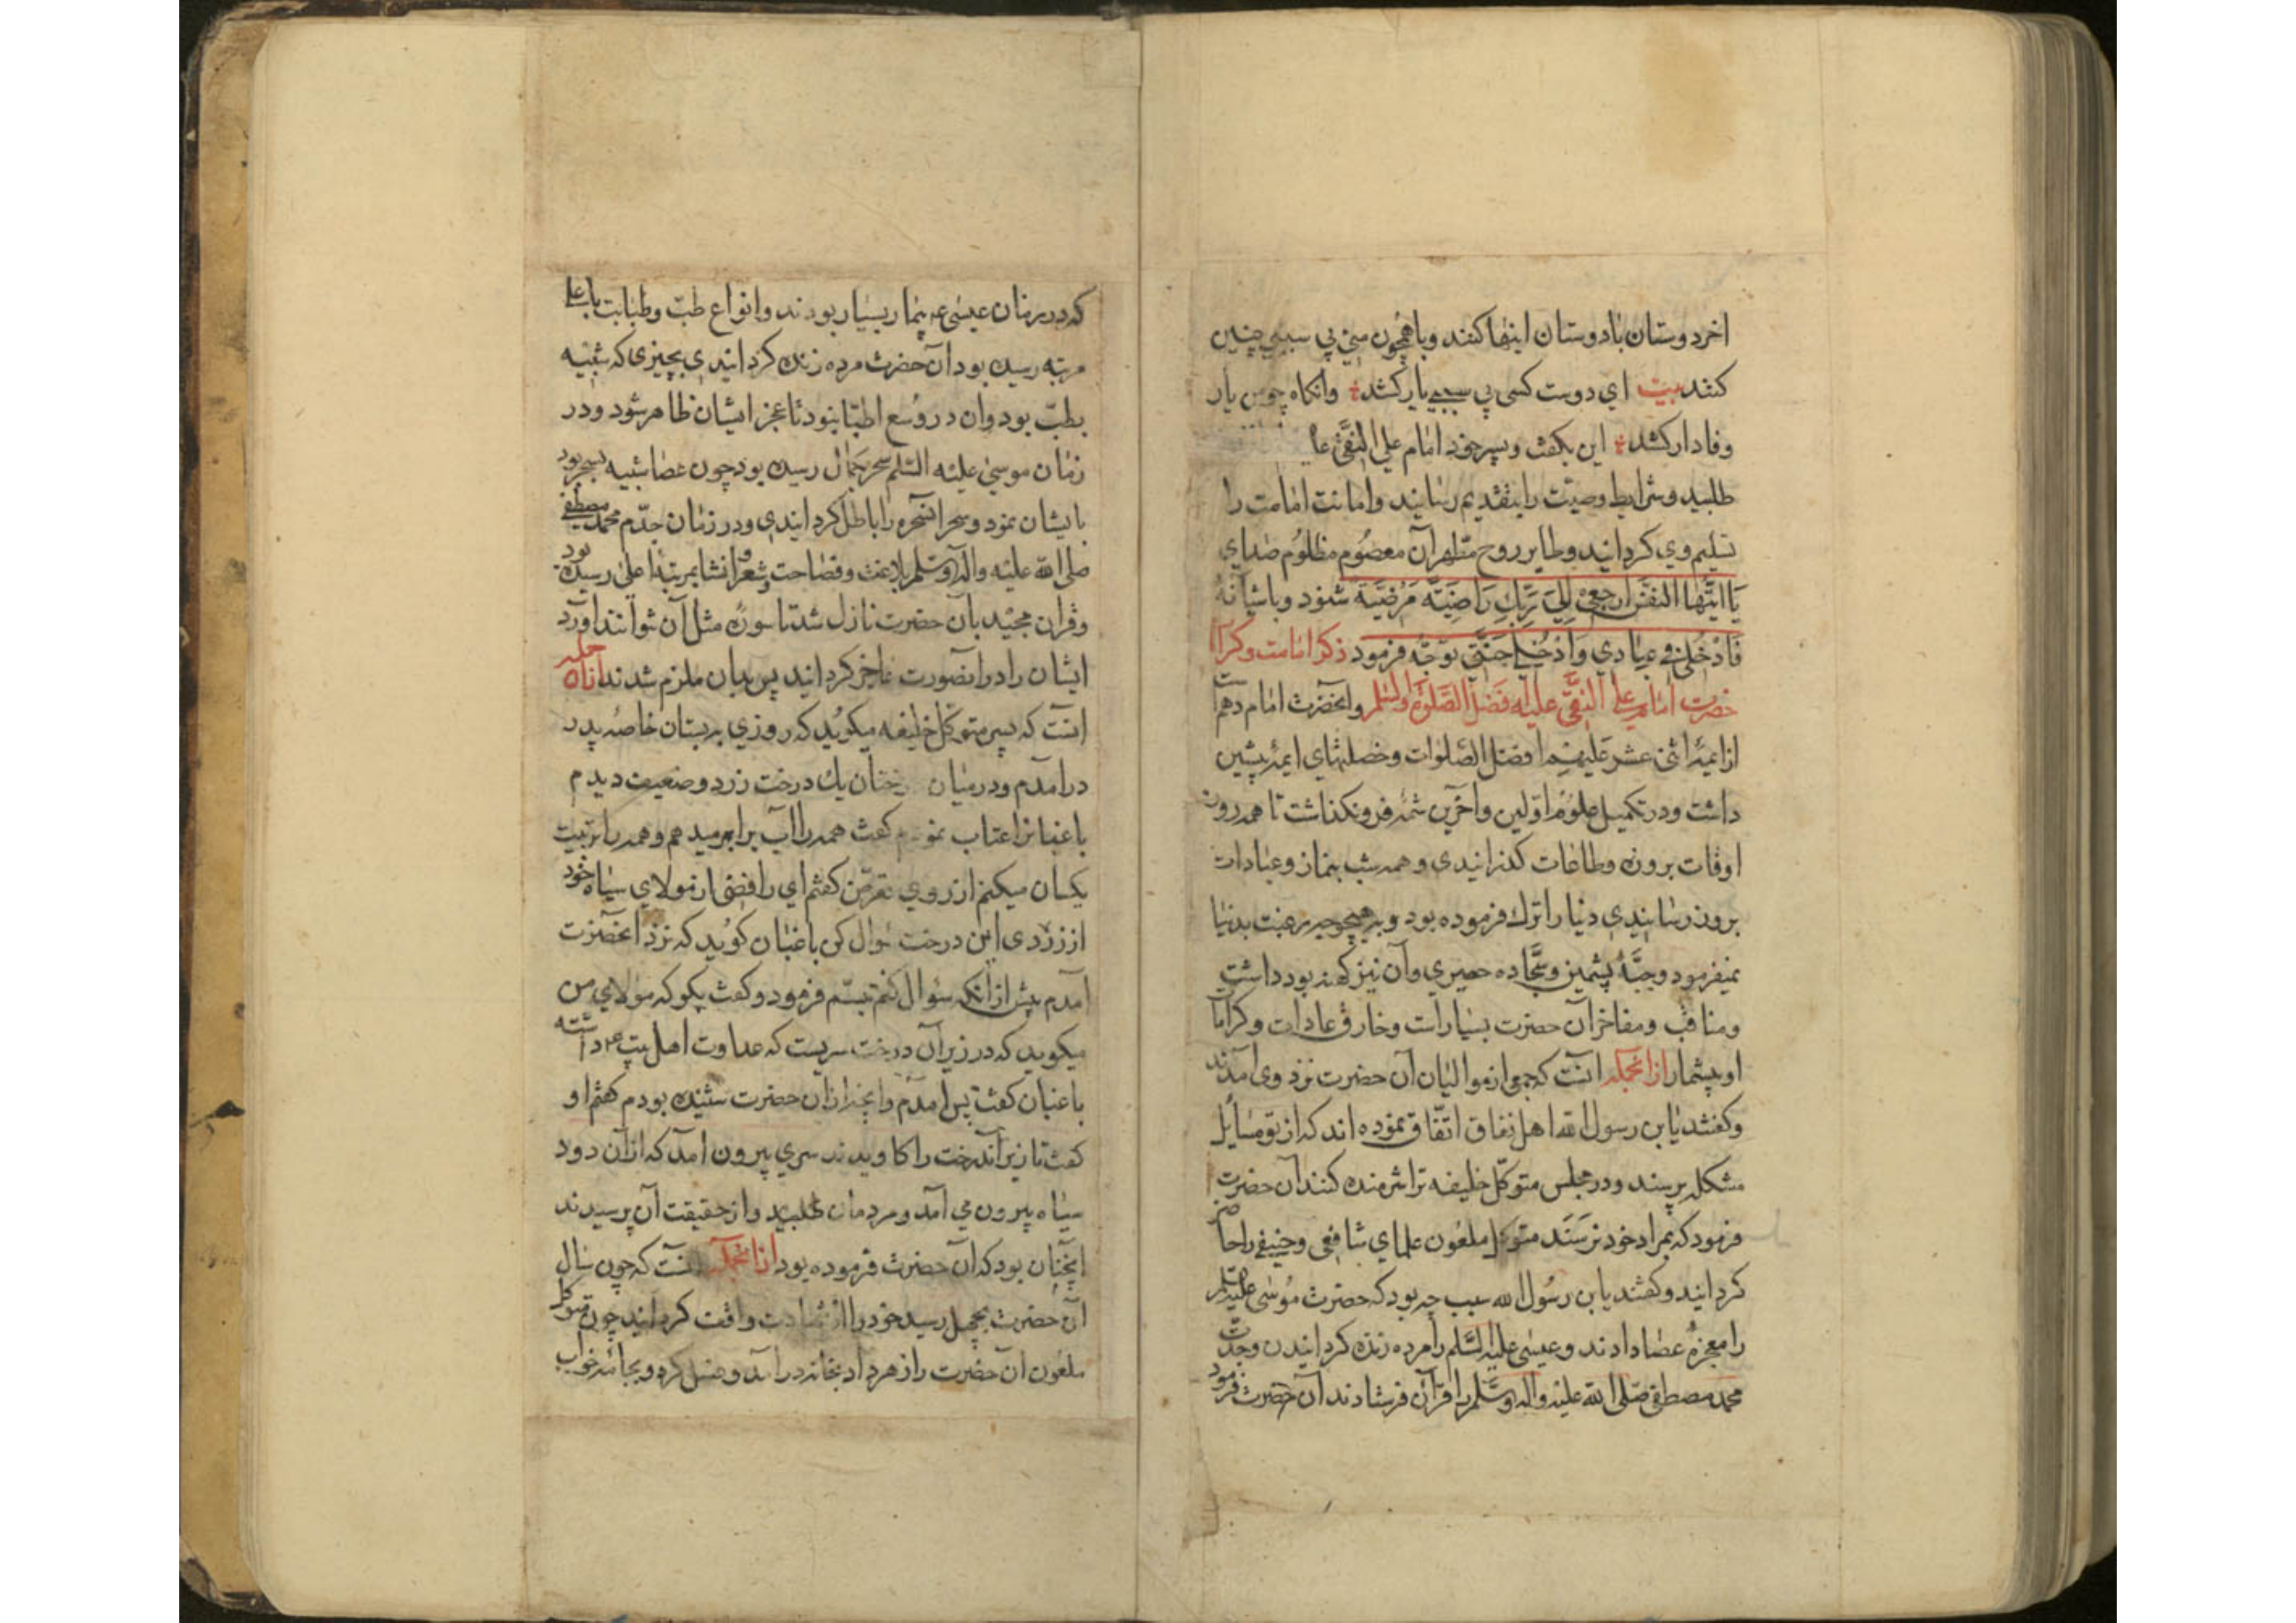 اخر دوستان با دوستان اینها کنند و با همچون منی بی سببی چنین
کنند بیت ای دوست کسی بی سببی یار کشد وانکاه چو من یار
وفادار کشد این بکفت و پسر خود امام علی النقی را
طلبید و شرایط وصیت را بتقدیم رسانید و امانت امامت را
تسلیم وی کردانید و طایر روح مطهر آن معصوم مظلوم صدای
یَا اَیَّتُهَا النَفسُ ارجِعی اِلیَ رَبِّکِ رَاضِیَةً مَرْضِیَّةً شنود و باشیانهٔ
فَادْخُلی فی عِبَادِی وَادْخُلی جَنَّتی توجّه فرمود ذکر امامت و کرامات
حضرت امام علی النقی علیه فضل الصلوة و السلم و انحضرت امام دهم است
از ایمهٔ اثنی عشر علیهم افضل الصلوات و خصلتهای ایمهٔ پیشین
داشت و در تکمیل علوم اولین و آخرین شمهٔ فرو نکذاشت تا همه روز
اوقات بروزه و طاعات کذرانیدی و همه شب بنماز و عبادات
بروز رسانیدی دنیا را ترك فرموده بود و بهیچ وجه رغبت بدنیا
نمیفرمود و جبّهٔ پشمین و سجّاده حصیری و آن نیز کهنه بود داشت
و مناقب و مفاخر آن حضرت بسیار است و خارق عادات و کرامات
او بیشمار ازانجمله انست که جمعی از موالیان آن حضرت نزد وی آمدند
و کفتند یا بن رسول الله اهل نفاق اتّفاق نموده اند که از تو مسایل
مشکله پرسند و در مجلس متوکّل خلیفه ترا شرمنده کنند آن حضرت
فرمود که بمراد خود نرسند متوکل ملعون علمای شافعی و حنیفی را حاضر
کردانید و کفتند یا بن رسول الله سبب چه بود که حضرت موسی علیه السلم
را معجزهٔ عصا دادند و عیسی علیه السلم را مرده زنده کردانیدن و جدّت
محمد مصطفی صلی الله علیه و اله و سلم را قرآن فرستادند آن حضرت فرمود
که در زمان عیسی ع بیمار بسیار بودند و انواع طبّ و طبابت باعلی
مرتبه رسیده بود آن حضرت مرده زنده کردانیدی بچیزی که شبیه
بطبّ بود و ان در وسع اطبّا نبود تا عجز ایشان ظاهر شود و در
زمان موسی علیه السّلم سحر بکمال رسیده بود چون عصا شبیه بسحر بود
بایشان نمود و سحر آن سحره را باطل کردانیدی و در زمان جدّم محمد مصطفی
صلی الله علیه و اله و سلم بلاغت و فصاحت و شعر و انشا بمرتبهٔ اعلی رسیده بود
و قران مجید بآن حضرت نازل شد تا سورهٔ مثل آن نتوانند آورد
ایشان را در انصورت عاجز کردانید پس بدان ملزم شدند ازان جمله
انست که پسر متوکّل خلیفه میکوید که روزی به بستان خاصه پدر
درامدم و در میان درختان یك درخت زرد و ضعیف دیدم
باغبانرا عتاب نمودم کفت همه را آب برابر میدهم و همه را تربیت
یکسان میکنم از روی تعرّض کفتم ای رافضی از مولای سیاه خود
از زردی این درخت سوال کن باغبان کوید که نزد انحضرت
آمدم پیش از آنکه سوال کنم تبسّم فرمود و کفت بکو که مولای من
میکوید که در زیر آن درخت سریست که عداوت اهل بیت ع داشته
باغبان کفت پس آمدم و آنچه ازان حضرت شنیده بودم کفتم او
کفت تا زیر آندرخت را کاویدند سری بیرون امد که از آن دود
سیاه بیرون می آمد و مردمان طلبید و از حقیقت آن پرسیدند
آنچنان بود که آن حضرت فرموده بود ازانجمله انست که چون سال
آن حضرت بچهل رسید خود را از شهادت واقف کردانید چون متوکل
ملعون آن حضرت را زهر داد بخانه درآمد و غسل کرد و بجامهٔ خواب